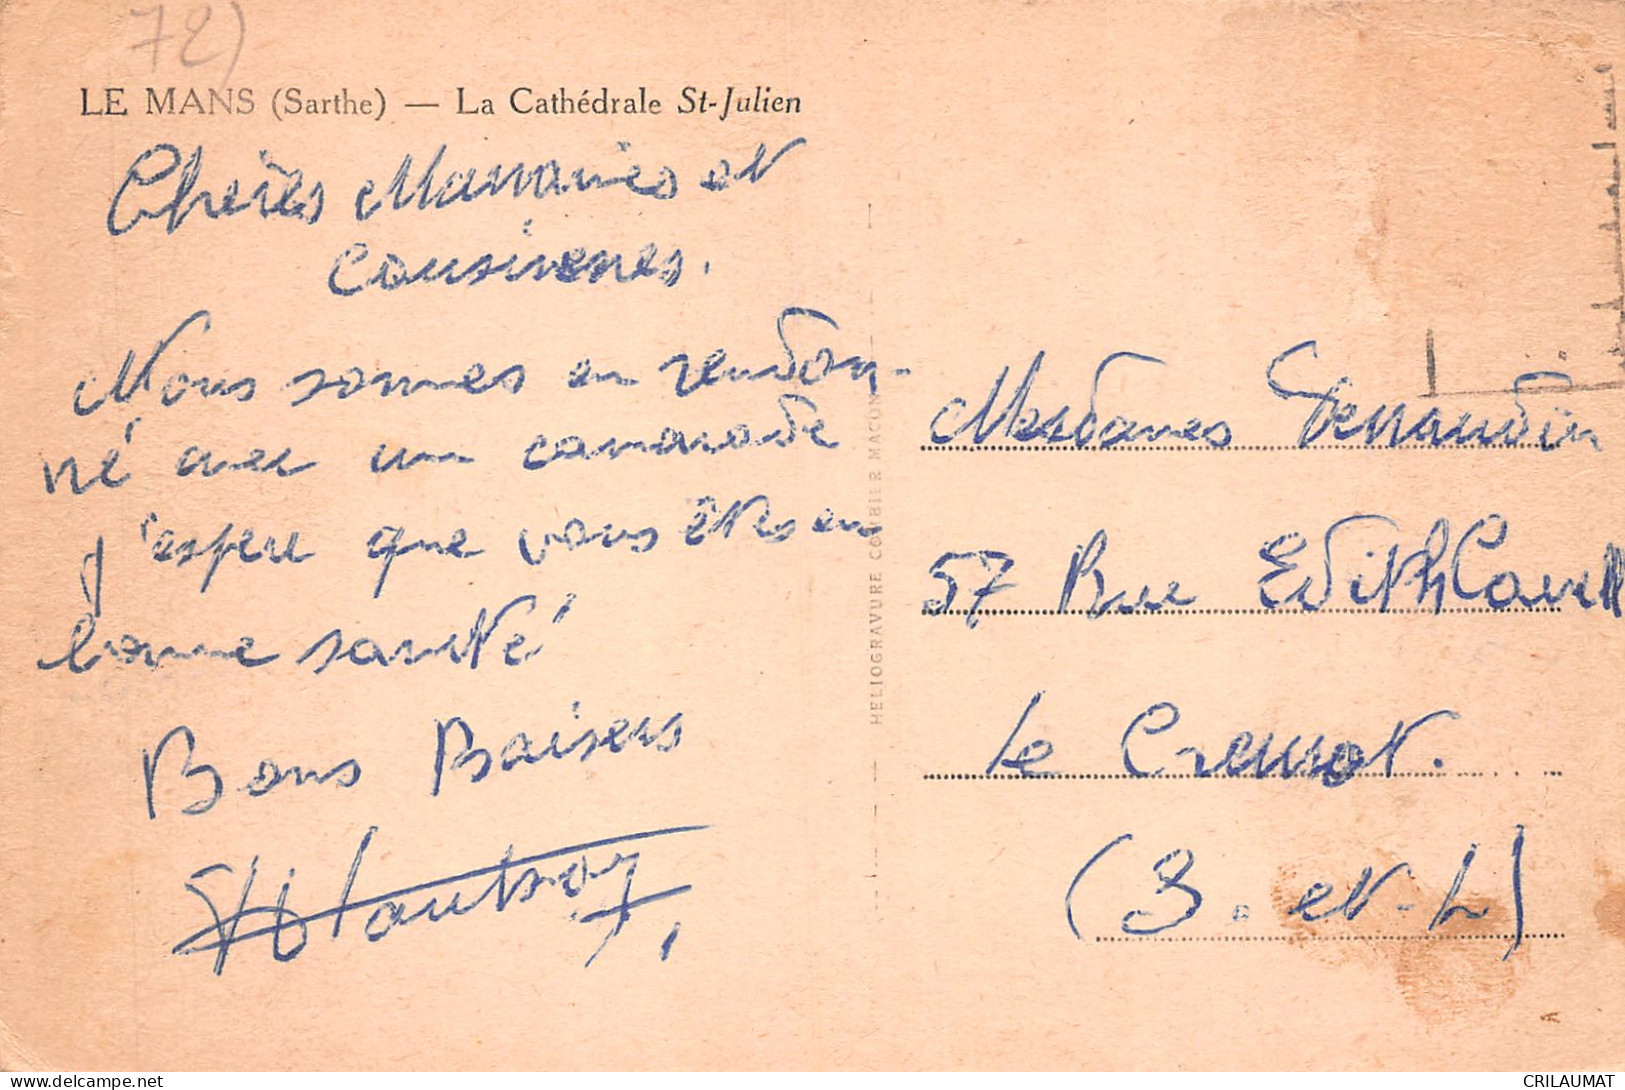 72)
LE MANS (Sarthe) — La Cathédrale St-Julien
Cheres Marraines et
Cousinenes.
Nous sommes en rendon-
né avec un camarade
j'espere que vous êtes en
bonne santé
Bons Baisers
HELIOGRAVURE COMBIER MACON
Mesdames
57 Rue Edith Cavell
Le Creusot.
(S. et-L)
CRILAUMAT